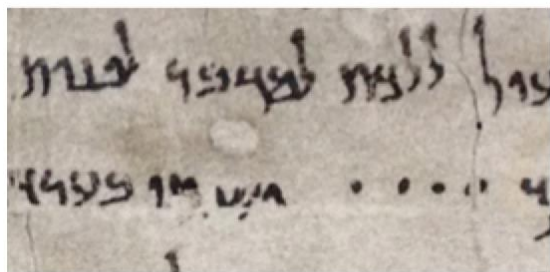 ול ללכת למדבר לפנות
ך •••• ישרו בערבה